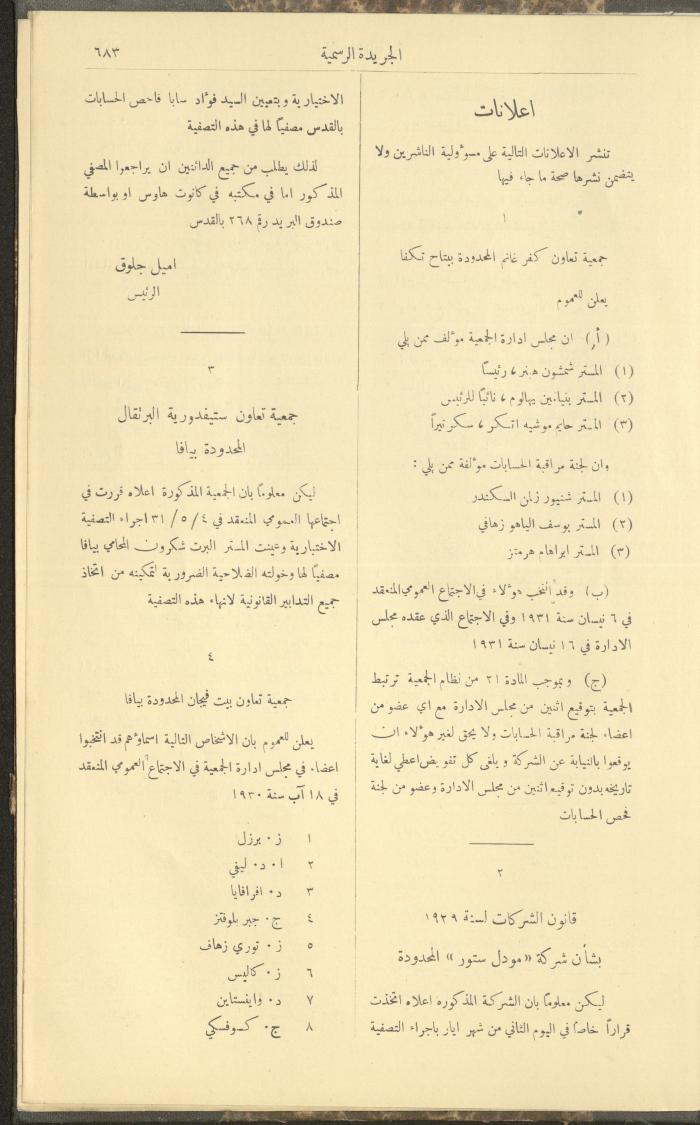 الجريدة الرسمية
٦٨٣
اعلانات
تنشر الاعلانات التالية على مسوؤلية الناشرين ولا
يتضمن نشرها صحة ما جاء فيها
١
جمعية تعاون كفر غانم المحدودة ببتاح تكفا
يعلن للعموم
(أ) ان مجلس ادارة الجمعية موؤلف ممن يلي
(١) المستر شمشون هنر، رئيسًا
(٢) المستر بنيامين يهالوم، نائبًا للرئيس
(٣) المستر حايم موشيه اتسكر، سكرتيراً
وان لجنة مراقبة الحسابات موؤلفة ممن يلي :
(١) المستر شنيور زلمن السكندر
(٢) المستر يوسف الياهو زهافي
(٣) المستر ابراهام هرمتز
(ب) وقد انتخب هوؤلاء في الاجتماع العمومي المنعقد
في ٦ نيسان سنة ١٩٣١ وفي الاجتماع الذي عقده مجلس
الادارة في ١٦ نيسان سنة ١٩٣١
(ج) وبموجب المادة ٢١ من نظام الجمعية ترتبط
الجمعية بتوقيع اثنين من مجلس الادارة مع اي عضو من
اعضاء لجنة مراقبة الحسابات ولا يحق لغير هوؤلاء ان
يوقعوا بالنيابة عن الشركة ويلغى كل تفويض اعطي لغاية
تاريخه بدون توقيع اثنين من مجلس الادارة وعضو من لجنة
فحص الحسابات
٢
قانون الشركات لسنة ١٩٢٩
بشأن شركة «مودل ستور» المحدودة
ليكن معلومًا بان الشركة المذكوره اعلاه اتخذت
قراراً خاصًا في اليوم الثاني من شهر ايار باجراء التصفية
الاختيارية وبتعيين السيد فوؤاد سابا فاحص الحسابات
بالقدس مصفيًا لها في هذه التصفية
لذلك يطلب من جميع الدائنين ان يراجعوا المصفي
المذكور اما في مكتبه في كانوت هاوس او بواسطة
صندوق البريد رقم ٢٦٨ بالقدس
اميل جلوق
الرئيس
٣
جمعية تعاون ستيفدورية البرتقال
المحدودة بيافا
ليكن معلومًا بان الجمعية المذكورة اعلاه قررت في
اجتماعها العمومي المنعقد في ٤/٥/٣١ اجراء التصفية
الاختيارية وعينت المستر البرت شكرون المحامي بيافا
مصفيًا لها وخولته الصلاحية الضرورية لتمكينه من اتخاذ
جميع التدابير القانونية لانهاء هذه التصفية
٤
جمعية تعاون بيت فيجان المحدودة بيافا
يعلن للعموم بان الاشخاص التالية اسماوؤهم قد انتخبوا
اعضاء في مجلس ادارة الجمعية في الاجتماع العمومي المنعقد
في ١٨ آب سنة ١٩٣٠
١ ز. برزل
٢ ا. د. ليفي
٣ د. افرافايا
٤ ج. جبر بلوفتز
٥ ز. توري زهاف
٦ ز. كاليس
٧ د. واينستاين
٨ ج. كسوفسكي